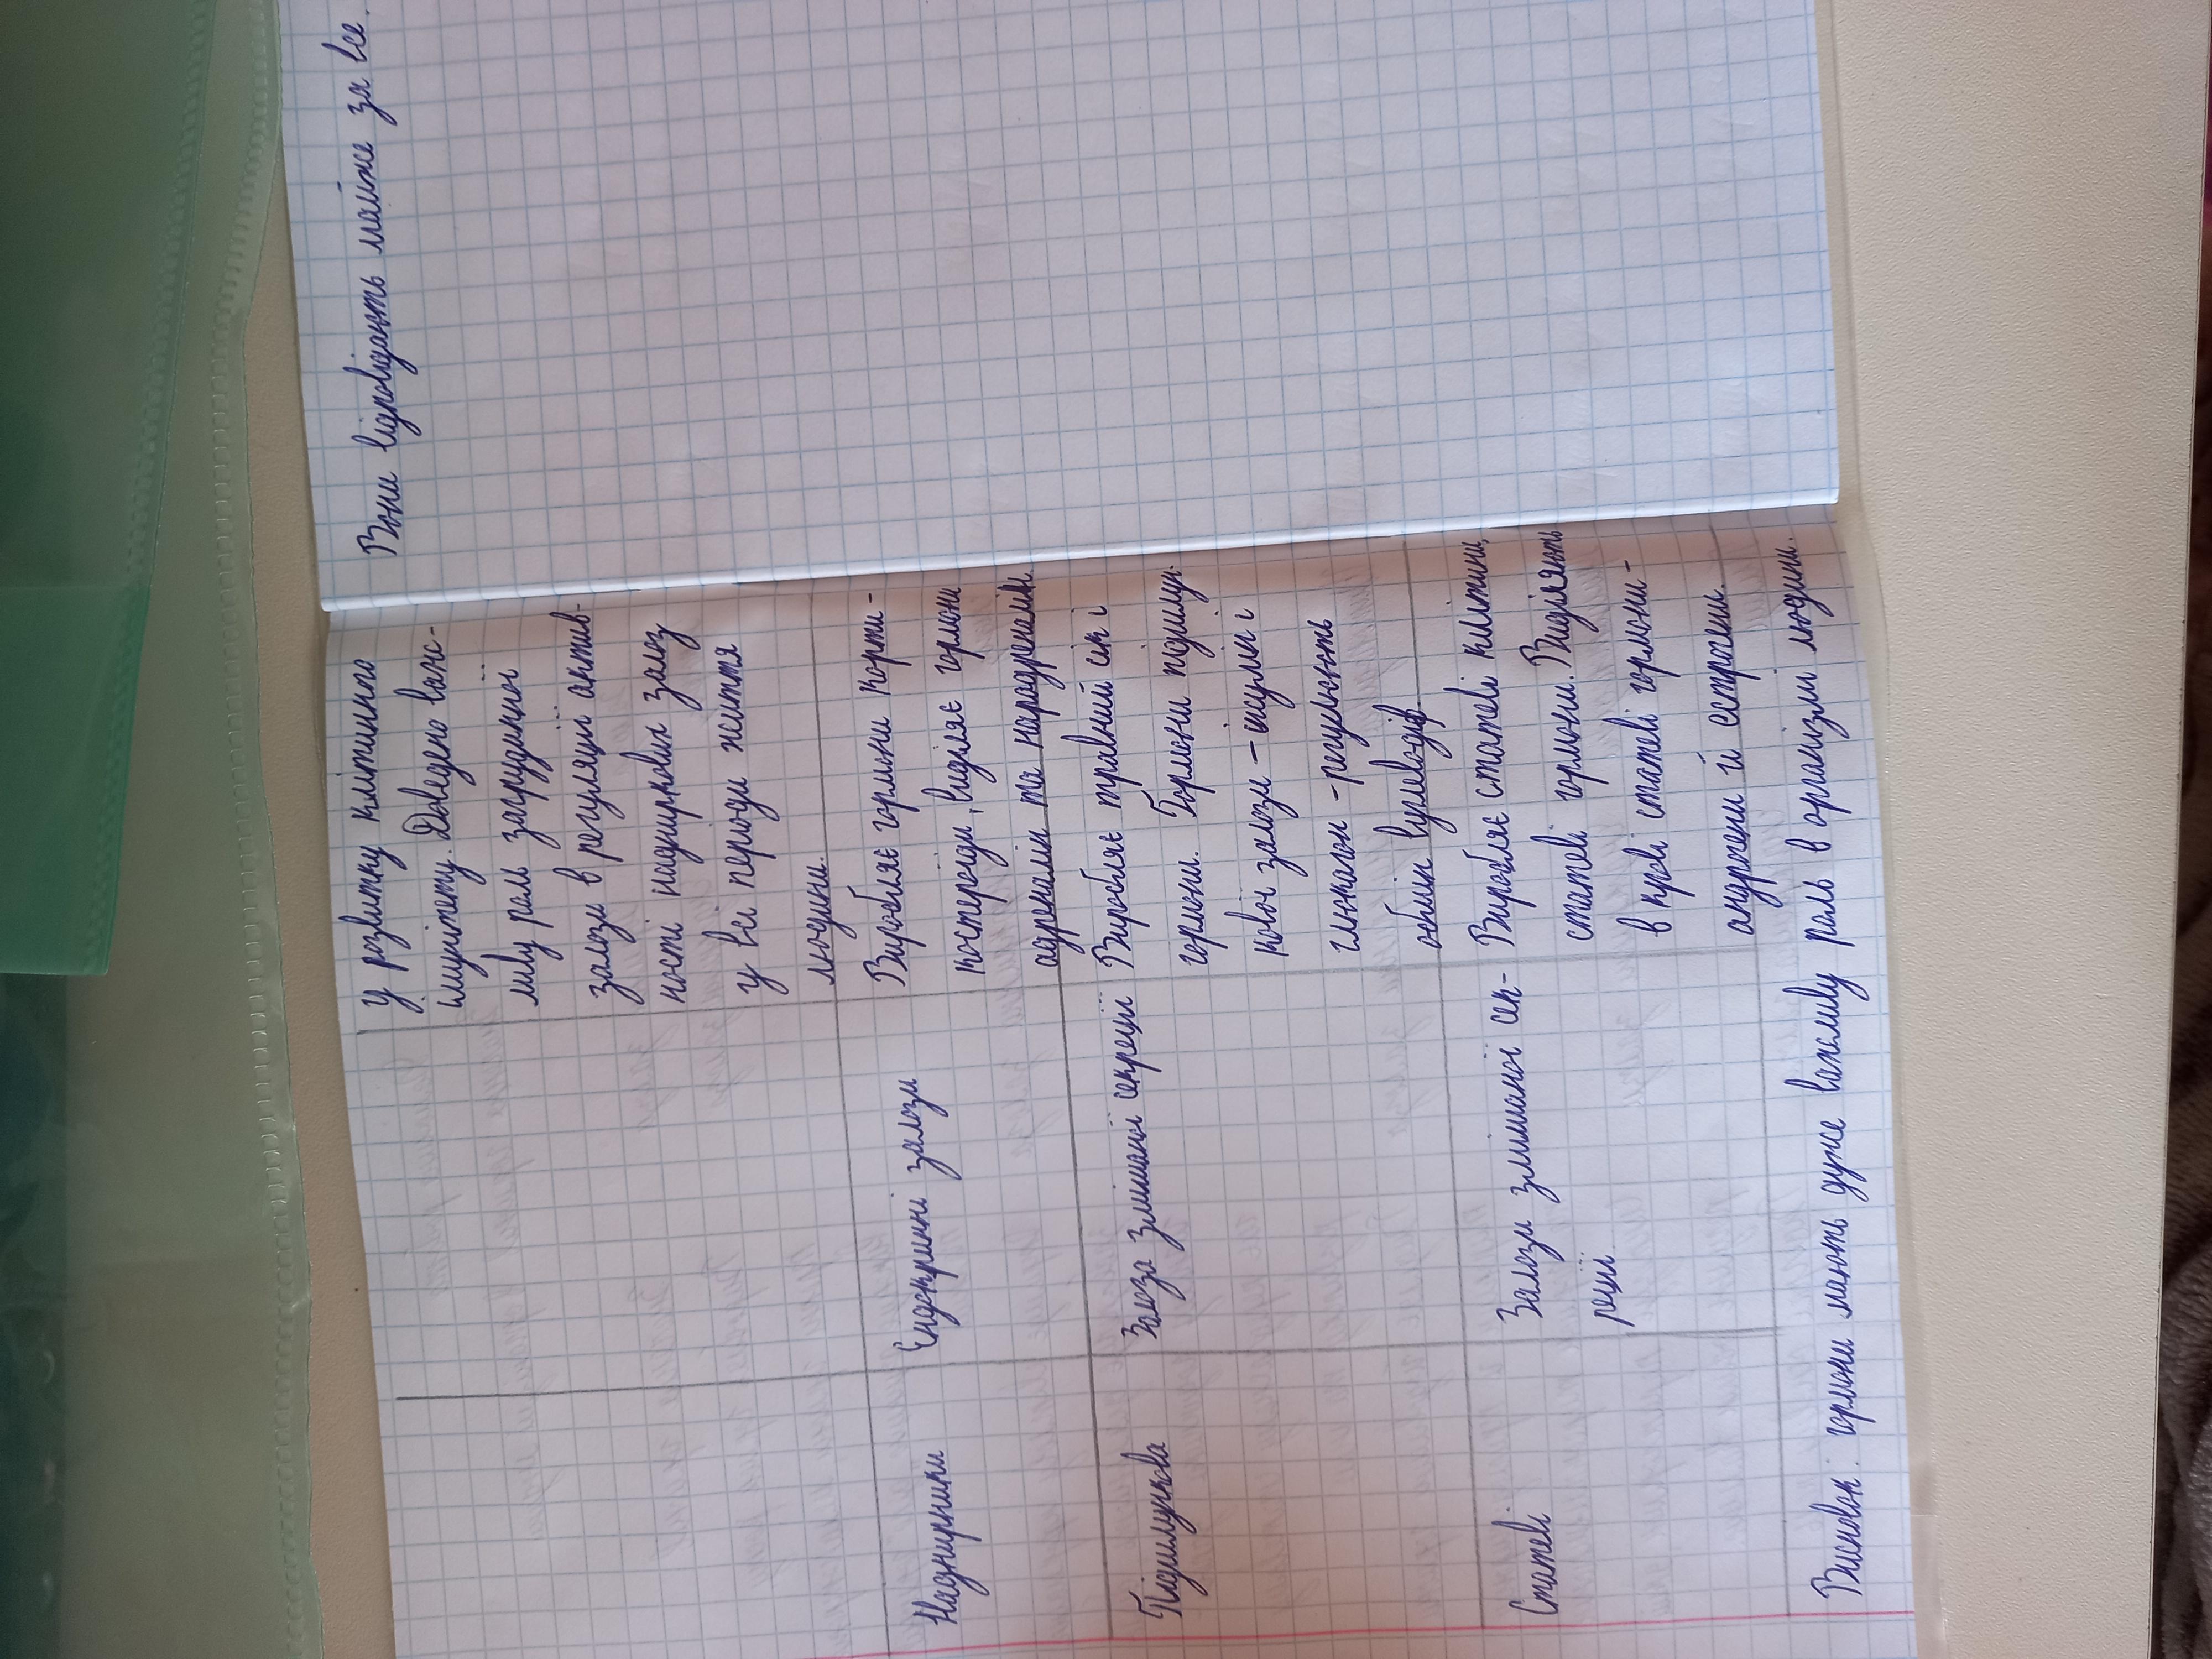 у розвитку клітинного
імунітету. Доведено важ-
ливу роль загруднинної
залози в регуляції актив-
ності наднирковиx залоз
у всі періоди життя
людини.
Надниркники
Ендокринні залози
Виробляє гормони корти-
костероїди, виділяє гормони
адреналін та норадреналін.
Підшлункова
Залоза змішаної секреції
Виробляє травний сік і
гормони. Гормони підшлун-
кової залози – інсулін і
глюкагон – регулюють
обмін вуглеводів
Статеві
Залози змішаної сек-
реції
Виробляє статеві клітини,
статеві гормони. Виділяють
в крові статеві гормони -
андрогени й естрогени.
Висновок: гормони мають дуже важливу роль в організмі людини.
Вони відповідають майже за все.